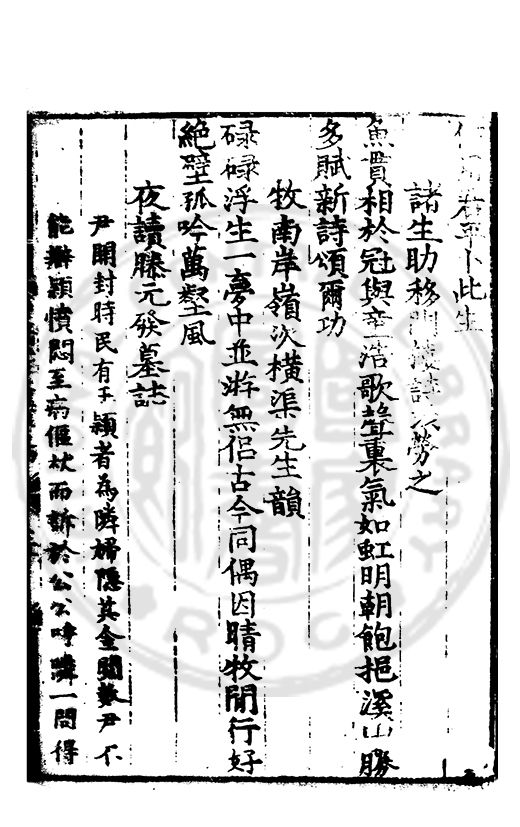 君平卜此生
諸生助移閒　詩以勞之
魚貫相於冠與童浩歌聲裏氣如虹明朝飽挹溪山勝
多賦新詩頌爾功
牧南岸嶺次橫渠先生韻
碌碌浮生一夢中並游無侶古今同偶因晴牧閒行好
絕壁孤吟萬壑風
夜讀滕元發墓誌
尹開封時民有王穎者為隣婦隱其金閱數尹不
能辦穎憤悶至病傴杖而訴於公公呼隣一問得